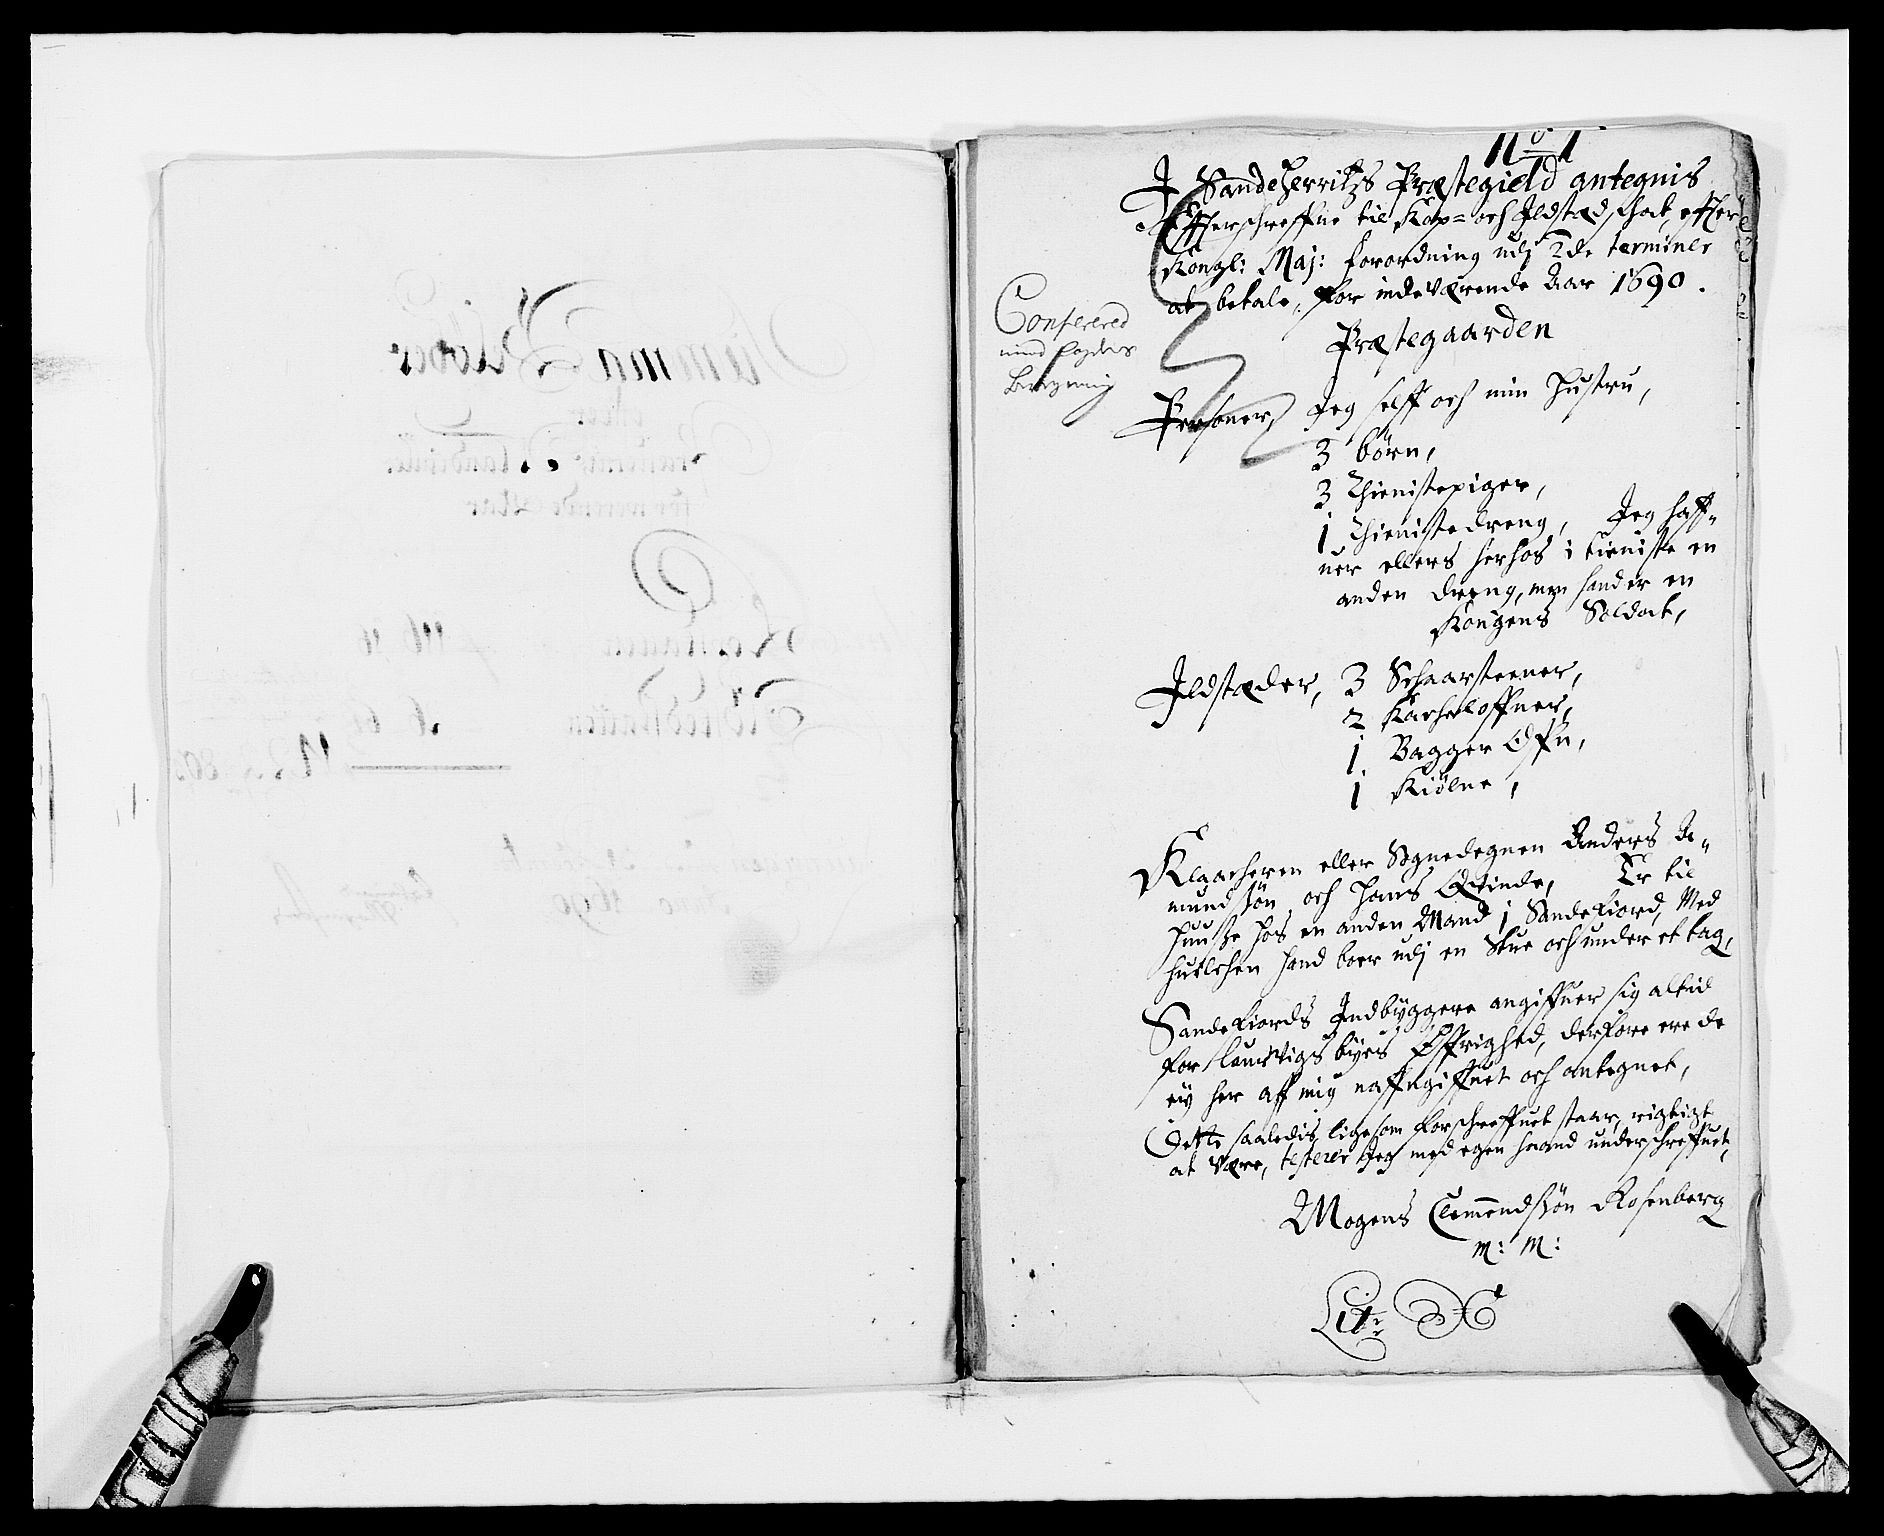 No 1
J Sandeherritzs Præstegield antegnis
Effterschreffne til Kop- och Jldstæd, schat, effter
Kongl: Maj: forordning udj 2de terminer
at betale, for indeværende Aar 1690.
Præstegaarden
Confereret
med fogdens
Beregning
Personer, Jeg selff och min Hustru,
3 børn,
3 Thienistepiger,
1 Thienistedreng, Jeg haff-
ver ellers her hos i tieniste en
anden dreng, men hand er en
Kongens Soldat,
Jldstæder, 3 Schaarsteener,
2 Kacheloffner,
1 Bagger Offn,
1 Kiølne,
Klaacheren eller Sognedegnen Anders A-
mundsøn och Hans Qvinde, Er til
huuse hos en anden Mand j Sandefiord, Med
huilchen hand boer udj en Stue och under et tag,
Sandefiords Jndbyggere angiffuer sig altid
for Laurvigs byes Øffrighed, derfore ere de
ey her aff mig naffngiffuet och antegnet,
Dette saaledis, ligesom forschreffuet staar, rigtigt
at være, testerer Jeg med egen haand underschreffuet,
Mogens Clemendsøn Rosenberg
m: m:
Litr X